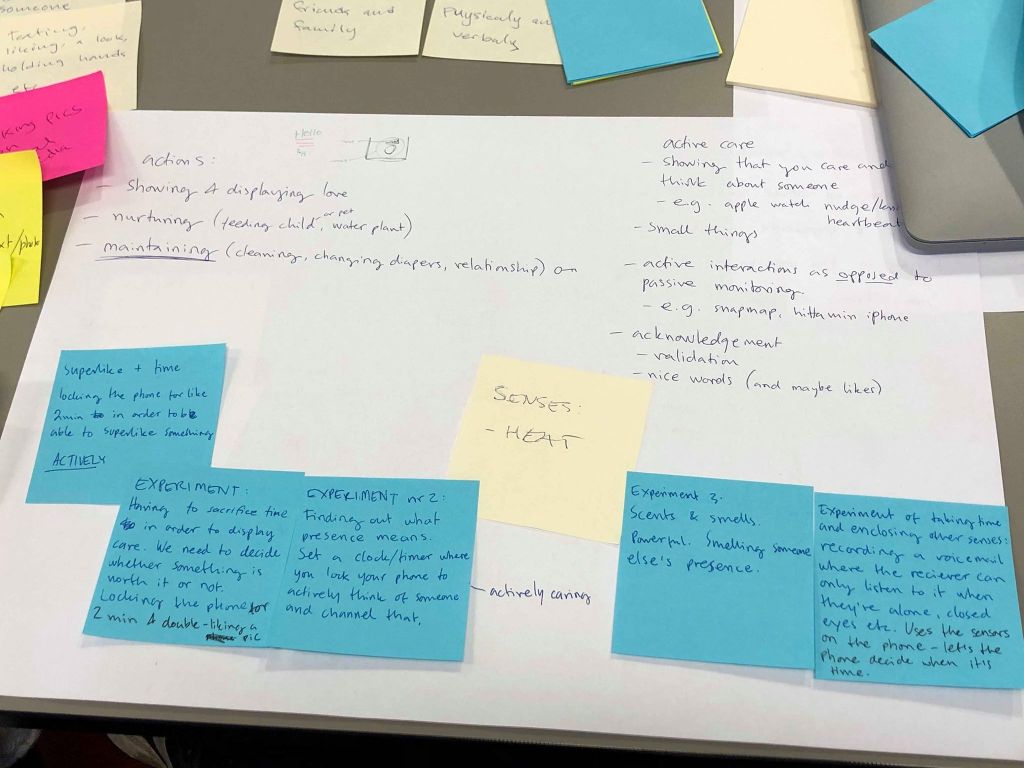 someone
texting,
liking, a look,
holding hands
etc
king pics
friends and
family
Physically an
verbaly
Hello
actions:
- Showing & displaying love
- nurturing (feeding child, or pet water plant)
- maintaining (cleaning, changing diapers, relationship) on
active care
- showing that you care and
think about someone
- e.g. apple watch nudge/
heartbeat
- small things
- active interactions as opposed to
passive monitoring
- e.g. snapmap, hitta min iphone
- acknowledgement
- validation
- nice words (and maybe likes)
Superlike + time
locking the phone for like
2min to in order to be
able to superlike something
ACTIVELY
EXPERIMENT:
Having to sacrifice time
in order to display
care. We need to decide
whether something is
worth it or not.
Locking the phone for
2 min & double-liking a
pic
EXPERIMENT nr 2:
Finding out what
presence means.
Set a clock/timer where
you lock your phone to
actively think of someone
and channel that.
- actively caring
SENSES:
- HEAT
Experiment 3.
Scents & smells.
Powerful. Smelling someone
else's presence.
Experiment of taking time
and enclosing other senses:
recording a voicemail
where the reciever can
only listen to it when
they're alone, closed
eyes etc. Uses the sensors
on the phone - let's the
phone decide when it's
time.